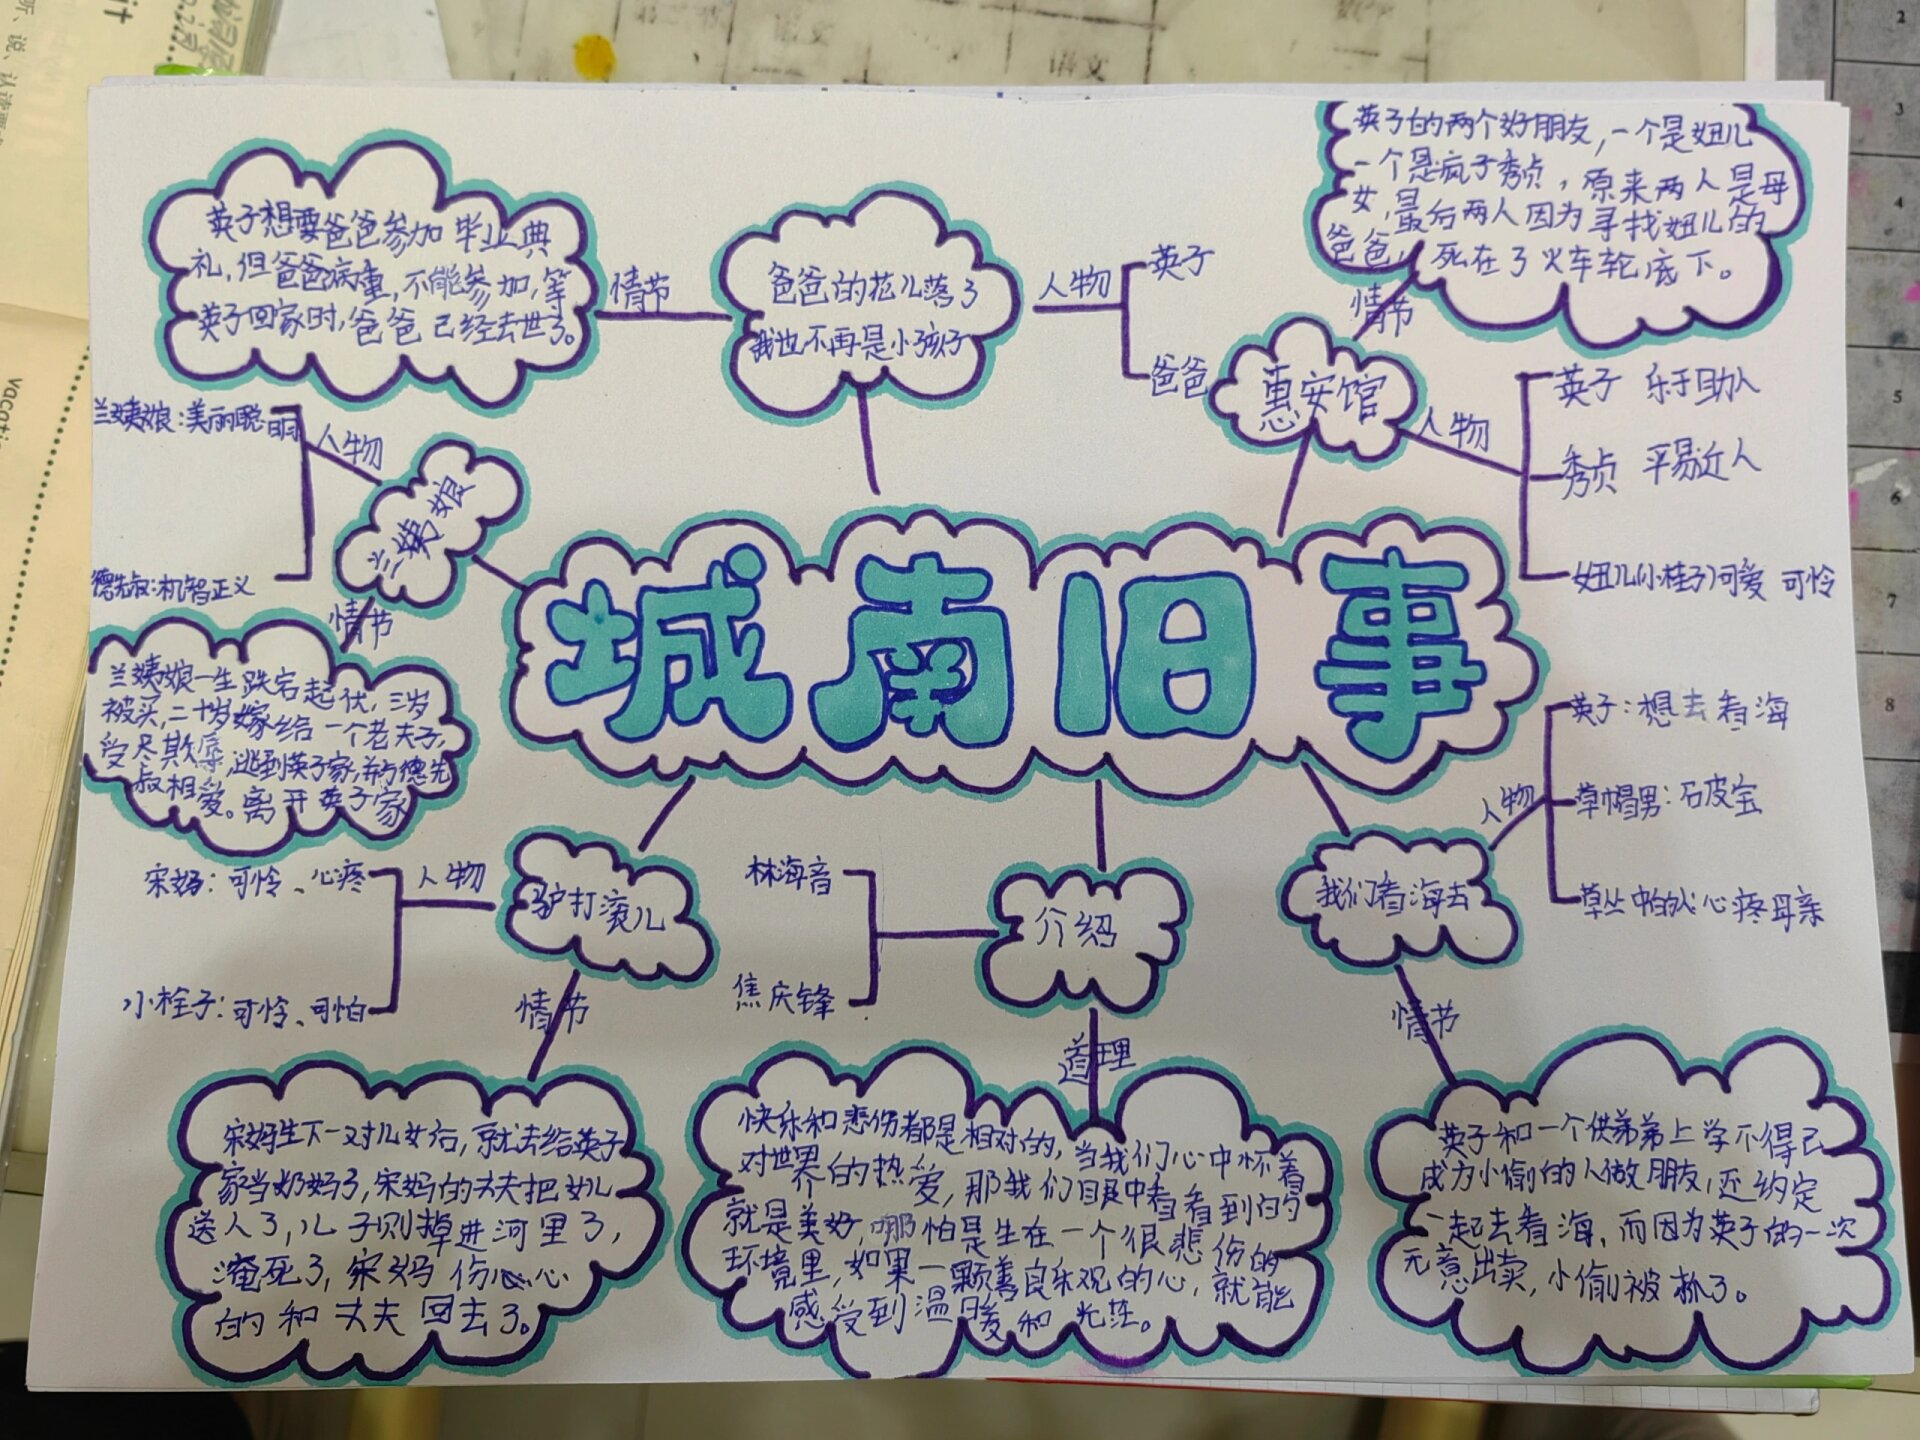 城南旧事
爸爸的花儿落了
我也不再是小孩子
情节
英子想要爸爸参加毕业典
礼,但爸爸病重,不能参加,等
英子回家时,爸爸已经去世了。
人物
英子
爸爸
惠安馆
情节
英子的两个好朋友,一个是妞儿
一个是疯子秀贞,原来两人是母
女,最后两人因为寻找妞儿的
爸爸,死在了火车轮底下。
人物
英子 乐于助人
秀贞 平易近人
妞儿(小桂子)可爱 可怜
兰姨娘
人物
兰姨娘:美丽聪明
德先叔:机智正义
情节
兰姨娘一生跌宕起伏,三岁
被买,二十岁嫁给一个老夫子,
受尽欺辱,逃到英子家,并与德先
叔相爱。离开英子家
驴打滚儿
人物
宋妈:可怜、心疼
小栓子:可怜、可怕
情节
宋妈生下一对儿女后,就去给英子
家当奶妈了,宋妈的丈夫把女儿
送人了,儿子则掉进河里了,
淹死了,宋妈伤心心
的和丈夫回去了。
介绍
林海音
焦庆锋
道理
快乐和悲伤都是相对的,当我们心中怀着
对世界的热爱,那我们眼中看看到的
就是美好,哪怕是生在一个很悲伤的
环境里,如果一颗善良乐观的心,就能
感受到温暖和光茫。
我们看海去
人物
英子:想去看海
草帽男:石皮宝
草丛中的人:心疼母亲
情节
英子和一个供弟弟上学不得已
成为小偷的人做朋友,还约定
一起去看海,而因为英子的一次
无意出卖,小偷被抓了。
2
3
4
5
6
7
8